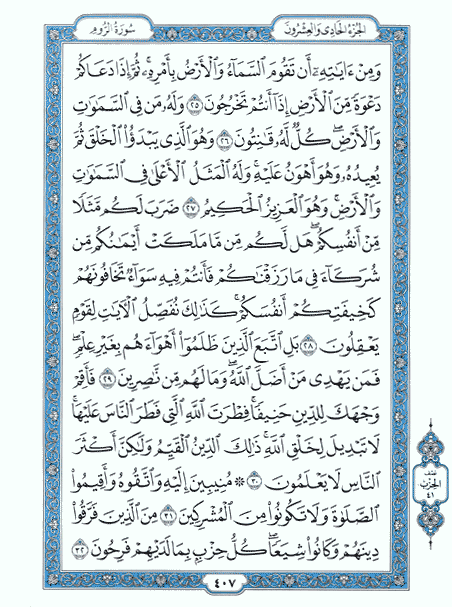 الجُزْءُ الحَادِى وَالعِشْرُونَ
سُورَةُ الرُّومِ
وَمِنْ ءَايَٰتِهِۦٓ أَن تَقُومَ ٱلسَّمَآءُ وَٱلْأَرْضُ بِأَمْرِهِۦۚ ثُمَّ إِذَا دَعَاكُمْ
دَعْوَةً مِّنَ ٱلْأَرْضِ إِذَآ أَنتُمْ تَخْرُجُونَ ٢٥ وَلَهُۥ مَن فِى ٱلسَّمَٰوَٰتِ
وَٱلْأَرْضِۖ كُلٌّ لَّهُۥ قَٰنِتُونَ ٢٦ وَهُوَ ٱلَّذِى يَبْدَؤُا۟ ٱلْخَلْقَ ثُمَّ
يُعِيدُهُۥ وَهُوَ أَهْوَنُ عَلَيْهِۚ وَلَهُ ٱلْمَثَلُ ٱلْأَعْلَىٰ فِى ٱلسَّمَٰوَٰتِ
وَٱلْأَرْضِۚ وَهُوَ ٱلْعَزِيزُ ٱلْحَكِيمُ ٢٧ ضَرَبَ لَكُم مَّثَلًا
مِّنْ أَنفُسِكُمْۖ هَل لَّكُم مِّن مَّا مَلَكَتْ أَيْمَٰنُكُم مِّن
شُرَكَآءَ فِى مَا رَزَقْنَٰكُمْ فَأَنتُمْ فِيهِ سَوَآءٌ تَخَافُونَهُمْ
كَخِيفَتِكُمْ أَنفُسَكُمْۚ كَذَٰلِكَ نُفَصِّلُ ٱلْءَايَٰتِ لِقَوْمٍ
يَعْقِلُونَ ٢٨ بَلِ ٱتَّبَعَ ٱلَّذِينَ ظَلَمُوٓا۟ أَهْوَآءَهُم بِغَيْرِ عِلْمٍۖ
فَمَن يَهْدِى مَنْ أَضَلَّ ٱللَّهُۖ وَمَا لَهُم مِّن نَّٰصِرِينَ ٢٩ فَأَقِمْ
وَجْهَكَ لِلدِّينِ حَنِيفًاۚ فِطْرَتَ ٱللَّهِ ٱلَّتِى فَطَرَ ٱلنَّاسَ عَلَيْهَاۚ
لَا تَبْدِيلَ لِخَلْقِ ٱللَّهِۚ ذَٰلِكَ ٱلدِّينُ ٱلْقَيِّمُ وَلَٰكِنَّ أَكْثَرَ
ٱلنَّاسِ لَا يَعْلَمُونَ ٣٠ ۞ مُنِيبِينَ إِلَيْهِ وَٱتَّقُوهُ وَأَقِيمُوا۟
ٱلصَّلَوٰةَ وَلَا تَكُونُوا۟ مِنَ ٱلْمُشْرِكِينَ ٣١ مِنَ ٱلَّذِينَ فَرَّقُوا۟
دِينَهُمْ وَكَانُوا۟ شِيَعًاۖ كُلُّ حِزْبٍۭ بِمَا لَدَيْهِمْ فَرِحُونَ ٣٢
الحِزْب
٤١
٤٠٧